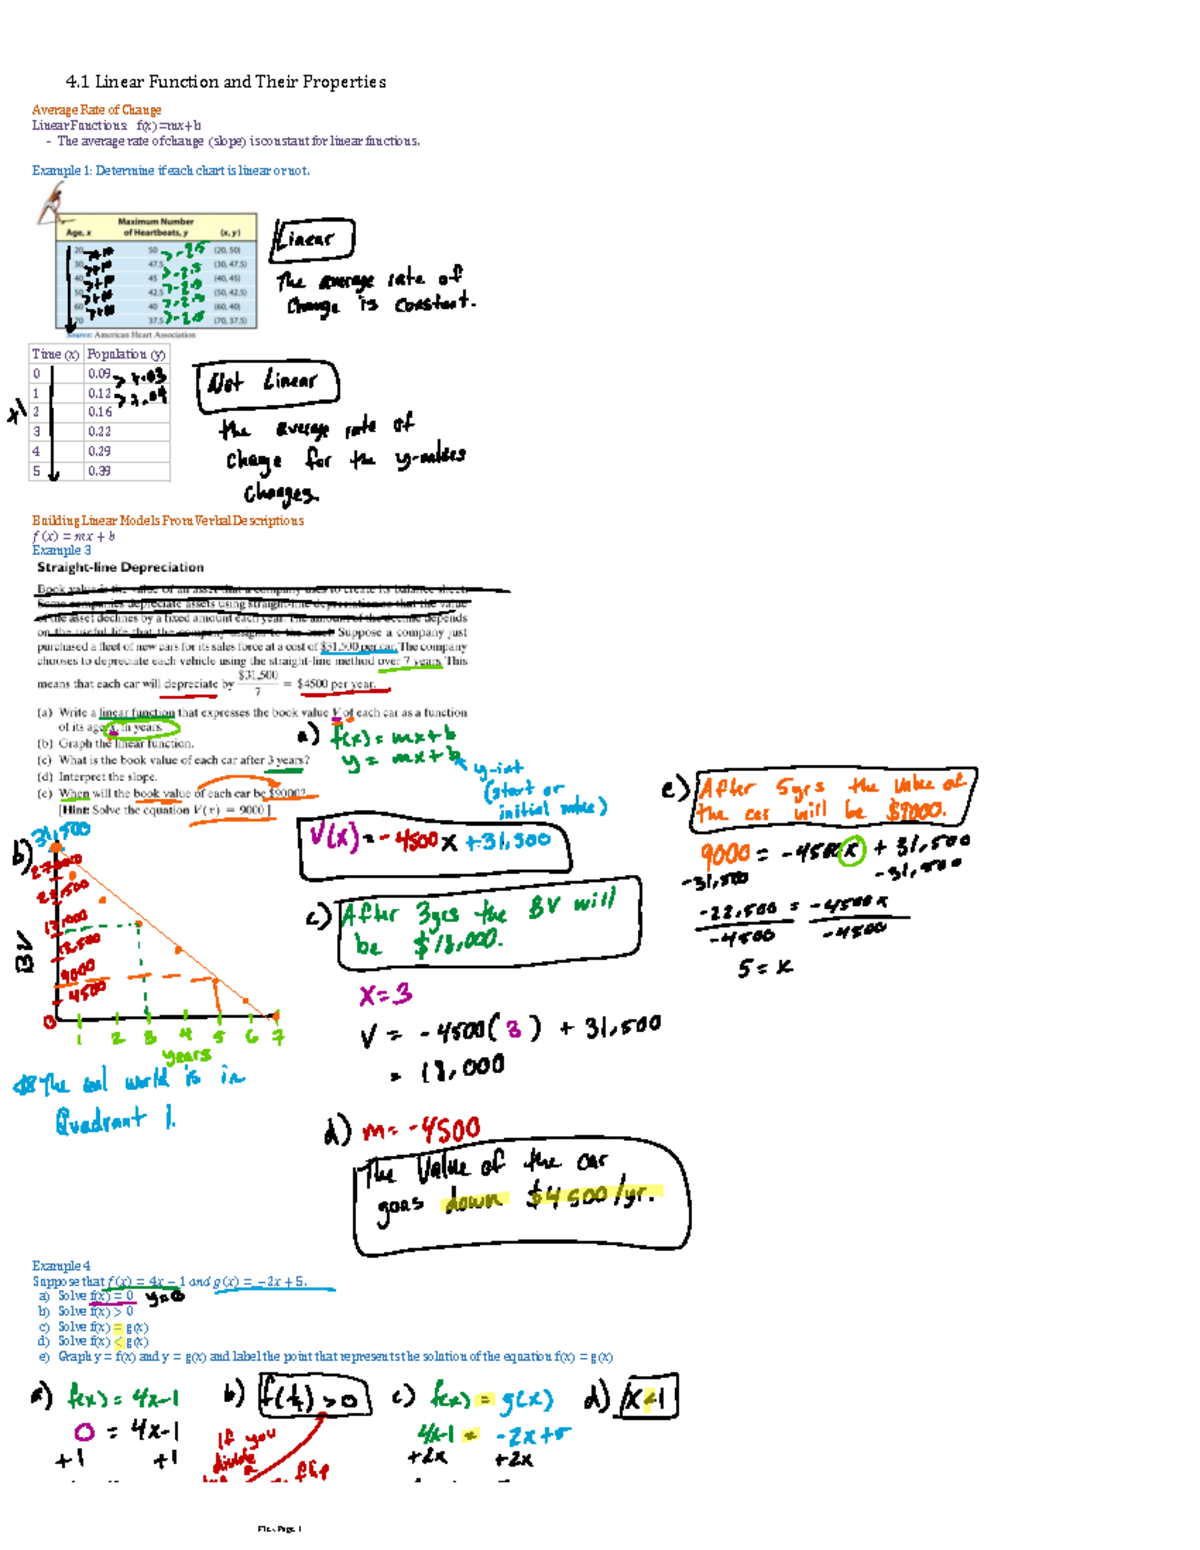 4.1 Linear Function and Their Properties
Average Rate of Change
Linear Functions: f(x)=mx+b
- The average rate of change (slope) is constant for linear functions.
Example 1: Determine if each chart is linear or not.
Maximum Number
Age, x of Heartbeats, y (x, y)
20 50 (20, 50)
30 47.5 (30, 47.5)
40 45 (40, 45)
50 42.5 (50, 42.5)
60 40 (60, 40)
70 37.5 (70, 37.5)
Source: American Heart Association
Linear
The average rate of
change is constant.
Time (x) Population (y)
0 0.09
1 0.12
2 0.16
3 0.22
4 0.29
5 0.39
+1
Not Linear
the average rate of
change for the y-values
changes.
Building Linear Models From Verbal Descriptions
f(x) = mx + b
Example 3
Straight-line Depreciation
Book value is the value of an asset that a company uses to create its balance sheet.
Some companies depreciate assets using straight-line depreciation so that the value
of the asset declines by a fixed amount each year. The amount of the decline depends
on the useful life that the company assigns to the asset. Suppose a company just
purchased a fleet of new cars for its sales force at a cost of $31,500 per car. The company
chooses to depreciate each vehicle using the straight-line method over 7 years. This
means that each car will depreciate by $31,500 / 7 = $4500 per year.
(a) Write a linear function that expresses the book value V of each car as a function
of its age, x, in years.
(b) Graph the linear function.
(c) What is the book value of each car after 3 years?
(d) Interpret the slope.
(e) When will the book value of each car be $9000?
[Hint: Solve the equation V(x) = 9000.]
a) f(x) = mx+b
y = mx+b
y-int
(start or
initial value)
V(x) = -4500x +31,500
b)
31,500
27,000
22,500
18,000
13,500
9000
4500
0
BV
1 2 3 4 5 6 7
years
The real world is in
Quadrant 1.
c) After 3yrs the BV will
be $18,000.
x=3
V = -4500(3) + 31,500
= 18,000
d) m= -4500
The Value of the car
goes down $4500/yr.
e) After 5yrs the value of
the car will be $9000.
9000 = -4500x + 31,500
-31,500 -31,500
-22,500 = -4500x
-4500 -4500
5 = x
Example 4
Suppose that f(x) = 4x − 1 and g(x) = −2x + 5.
a) Solve f(x) = 0 y=0
b) Solve f(x) > 0
c) Solve f(x) = g(x)
d) Solve f(x) < g(x)
e) Graph y = f(x) and y = g(x) and label the point that represents the solution of the equation f(x) = g(x)
a) f(x) = 4x-1
0 = 4x-1
+1 +1
b)
If you
divide
flip
c) f(x) = g(x)
4x-1 = -2x+5
+2x +2x
d) x<1